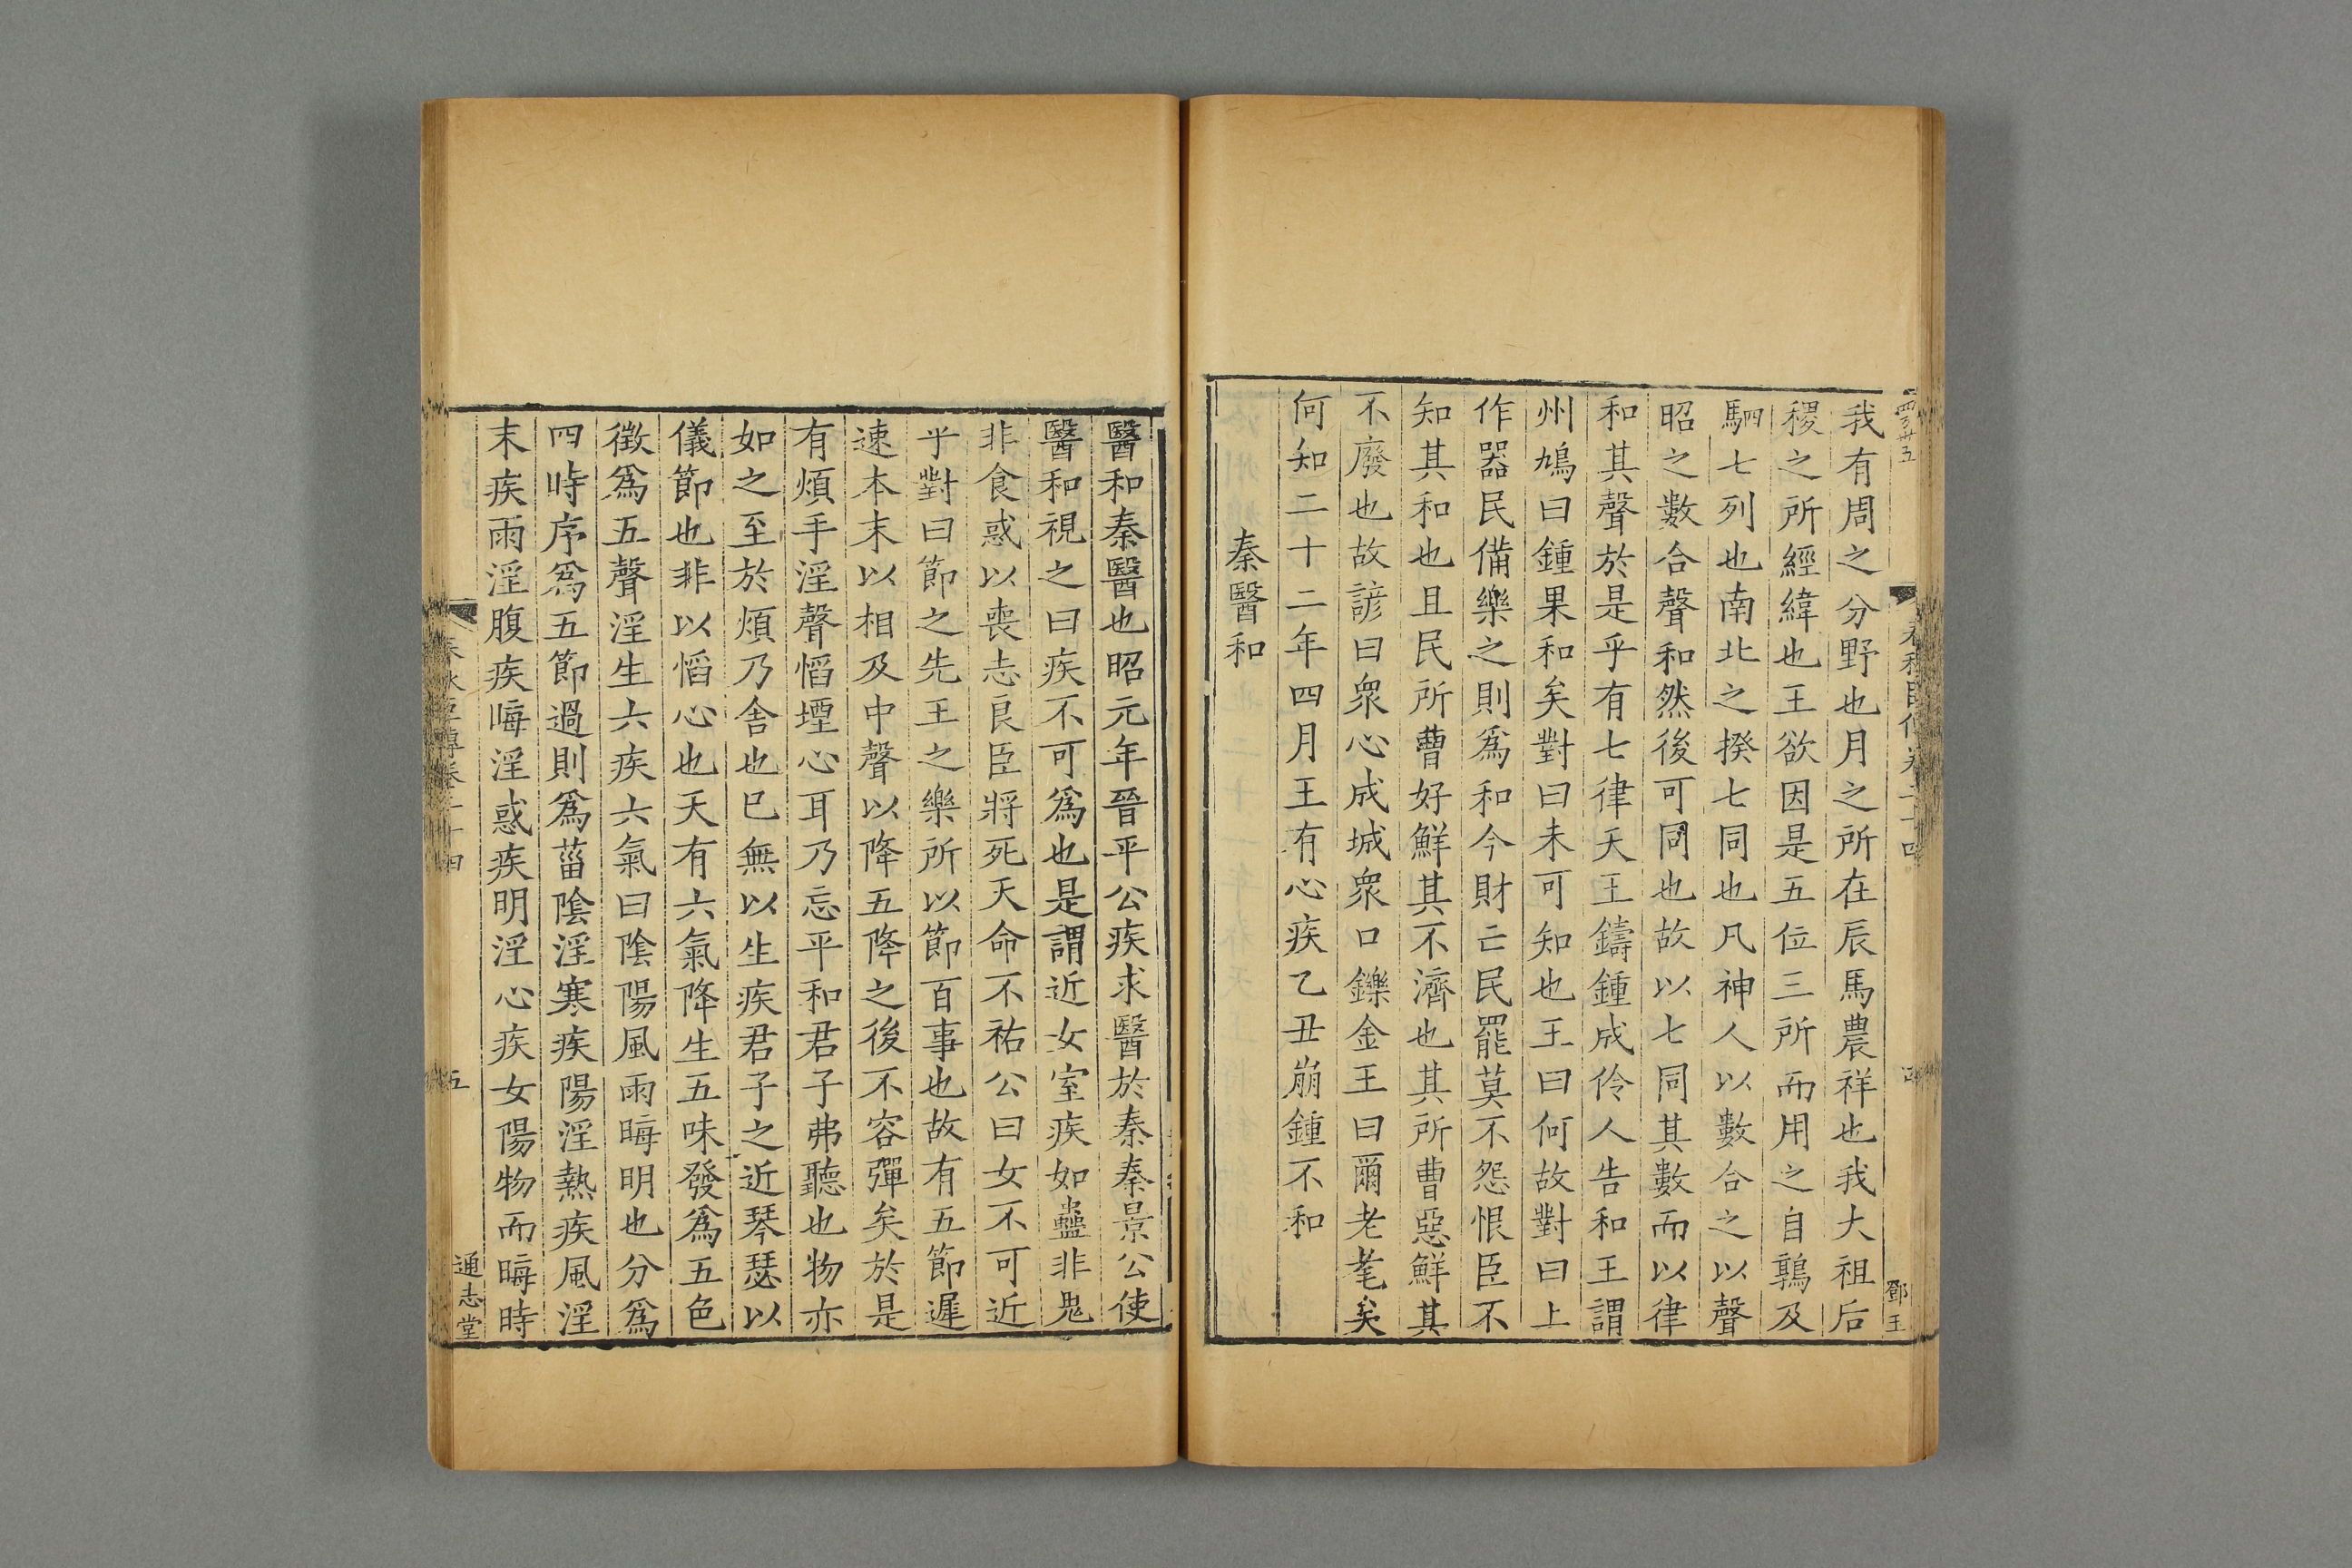 我有周之分野也月之所在辰馬農祥也我大祖后
稷之所經緯也王欲因是五位三所而用之自鶉及
駟七列也南北之揆七同也凡神人以數合之以聲
昭之數合聲和然後可同也故以七同其數而以律
和其聲於是乎有七律天王鑄鍾成伶人告和王謂
州鳩曰鍾果和矣對曰未可知也王曰何故對曰上
作器民備樂之則爲和今財亡民罷莫不怨恨臣不
知其和也且民所曹好鮮其不濟也其所曹惡鮮其
不廢也故諺曰衆心成城衆口鑠金王曰爾老耄矣
何知二十二年四月王有心疾乙丑崩鍾不和
秦醫和
醫和秦醫也昭元年晉平公疾求醫於秦秦景公使
醫和視之曰疾不可爲也是謂近女室疾如蠱非鬼
非食惑以喪志良臣將死天命不祐公曰女不可近
乎對曰節之先王之樂所以節百事也故有五節遲
速本末以相及中聲以降五降之後不容彈矣於是
有煩手淫聲慆堙心耳乃忘平和君子弗聽也物亦
如之至於煩乃舍也已無以生疾君子之近琴瑟以
儀節也非以慆心也天有六氣降生五味發爲五色
徵爲五聲淫生六疾六氣曰陰陽風雨晦明也分爲
四時序爲五節過則爲菑陰淫寒疾陽淫熱疾風淫
末疾雨淫腹疾晦淫惑疾明淫心疾女陽物而晦時
五
通志堂